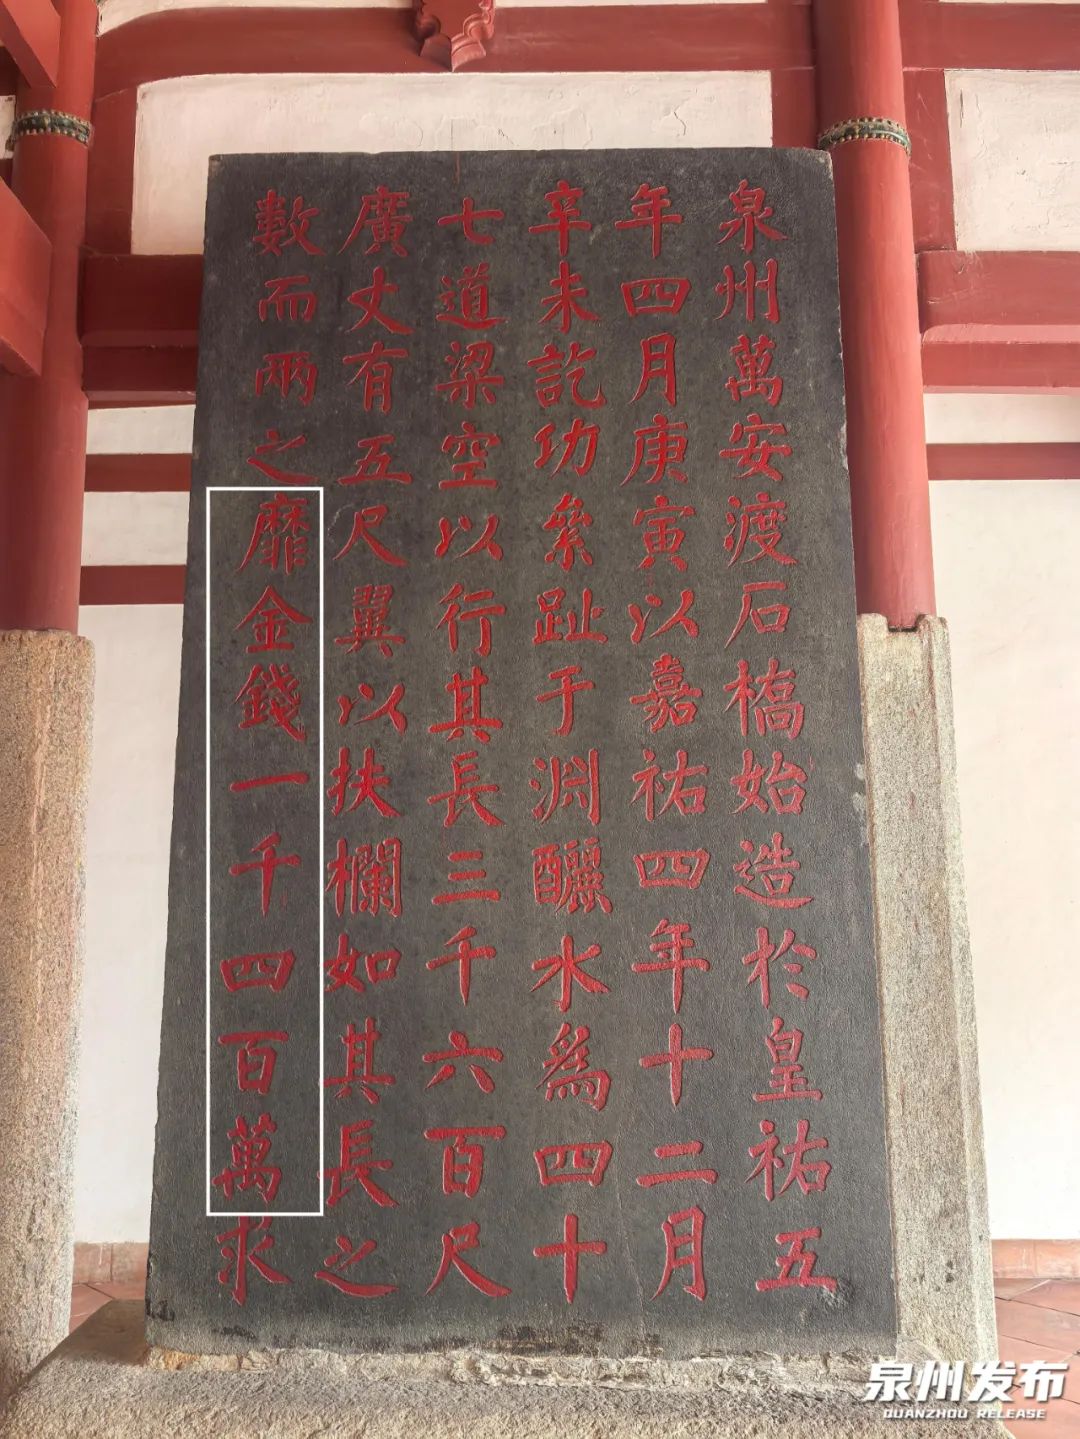 泉州萬安渡石橋始造於皇祐五
年四月庚寅以嘉祐四年十二月
辛未訖功絫趾于淵釃水爲四十
七道梁空以行其長三千六百尺
廣丈有五尺翼以扶欄如其長之
數而兩之靡金錢一千四百萬求
泉州发布
QUANZHOU RELEASE